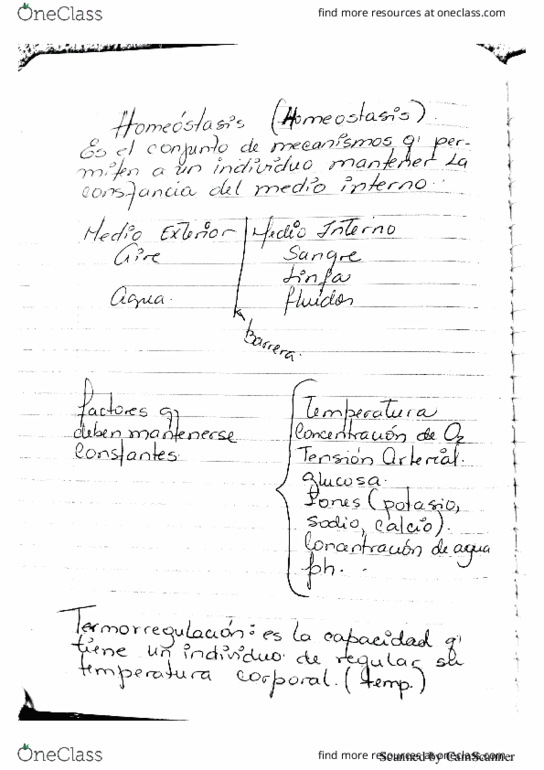 OneClass
find more resources at oneclass.com
Homeóstasis (Homeostasis).
Es el conjunto de mecanismos q' per-
miten a un individuo mantener la
constancia del medio interno.
Medio Exterior
Medio Interno
Aire
Sangre
Linfa
Agua.
fluidos
Barrera.
factores q'
deben mantenerse
constantes
Temperatura
Concentración de O2
Tensión Arterial.
glucosa.
Iones (potasio,
sodio, calcio).
Concentración de agua
ph.
Termorregulación: es la capacidad q'
tiene un individuo de regular su
temperatura corporal. (temp.)
OneClass
find more resources at oneclass.com
Scanned by CamScanner